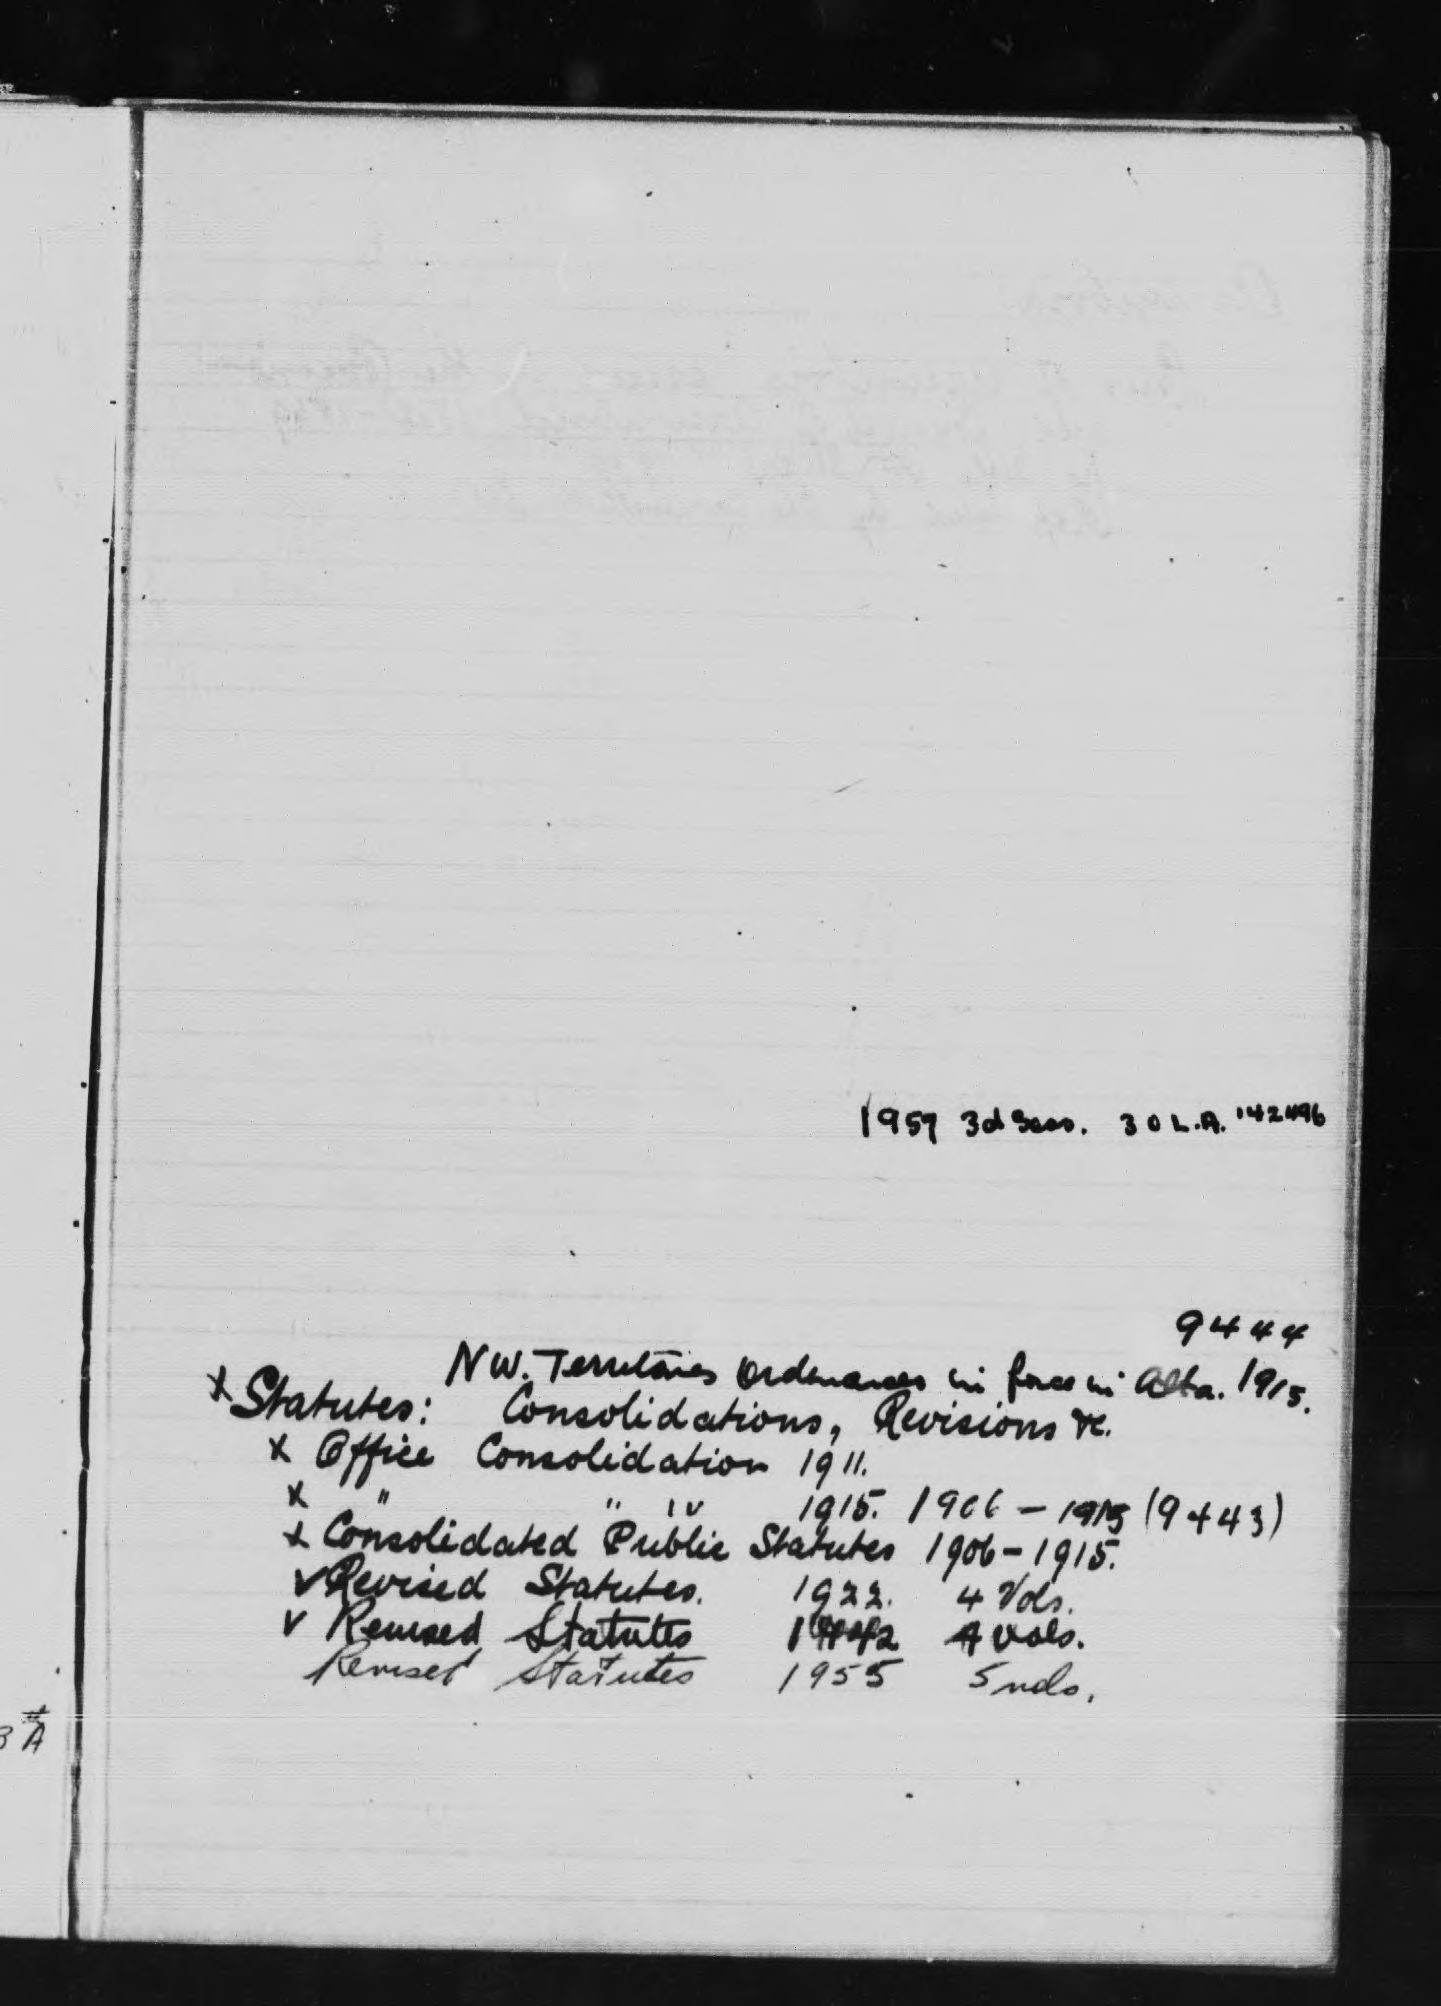 1957 3d Sess. 3 0 L.A. 142496
9444
N W. Territories Ordenances in force in Alta. 1915.
x Statutes: Consolidations, Revisions &c.
x Office Consolidation 1911.
x " " 1915. 1906 - 1915 (9443)
x Consolidated Public Statutes 1906-1915.
v Revised Statutes. 1922. 4 Vols.
v Revised Statutes 1942 4 vols.
Revised Statutes 1955 5 vols.
A